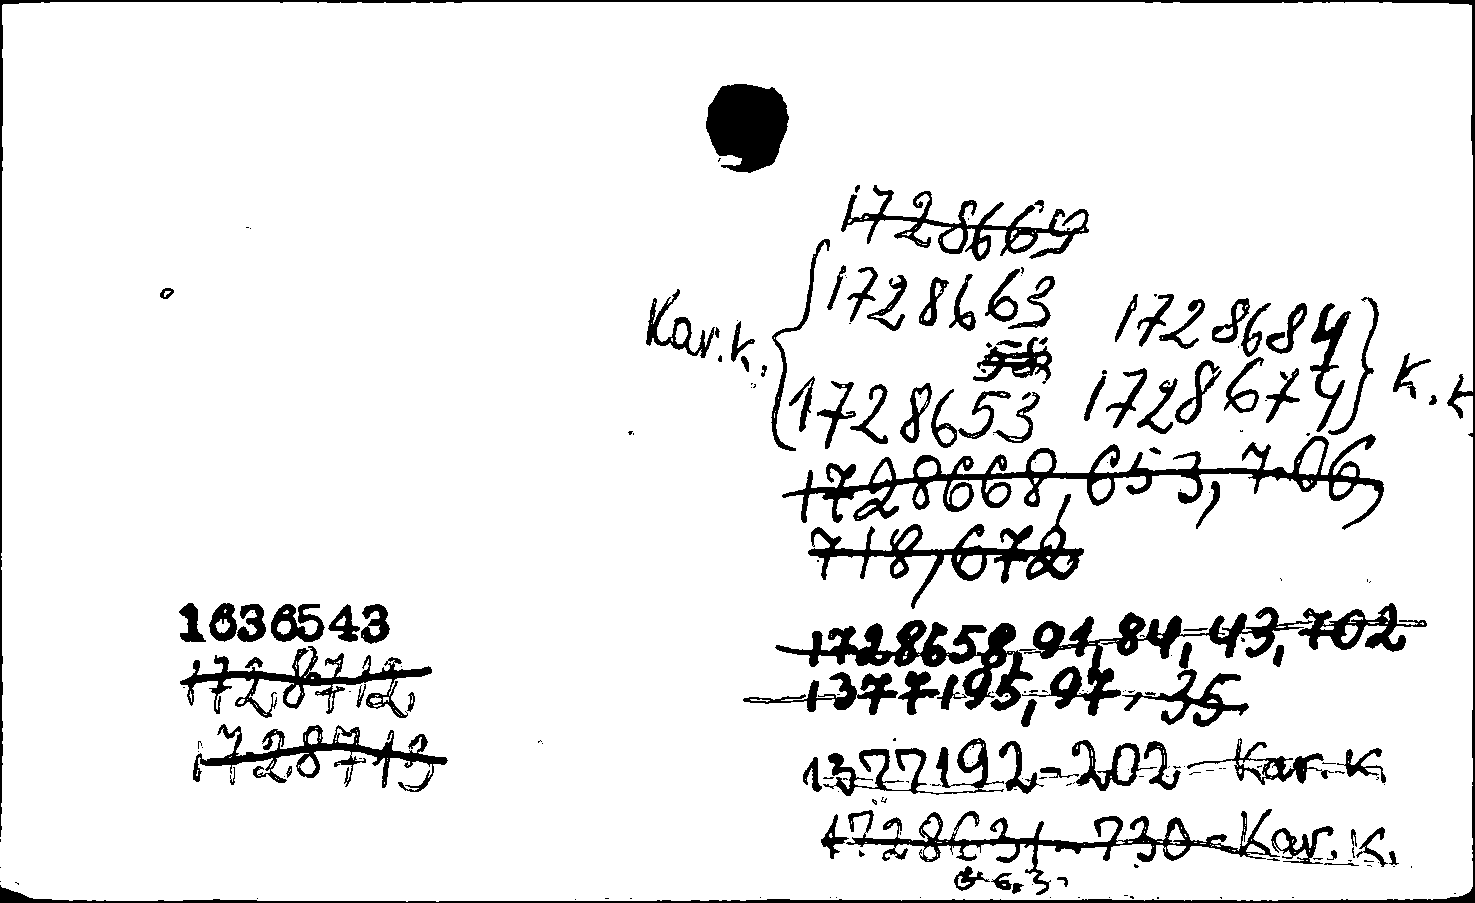 1728669
Kar.k. { 1728663
1728653
1728684
1728674 } K.k
1728668, 653, 706,
718, 672
1636543
1728712,
1728713
1728658, 91, 84, 43, 702
1377195, 97, 35
1377192-202 - Kar.k.
1728631-730 - Kar.k.